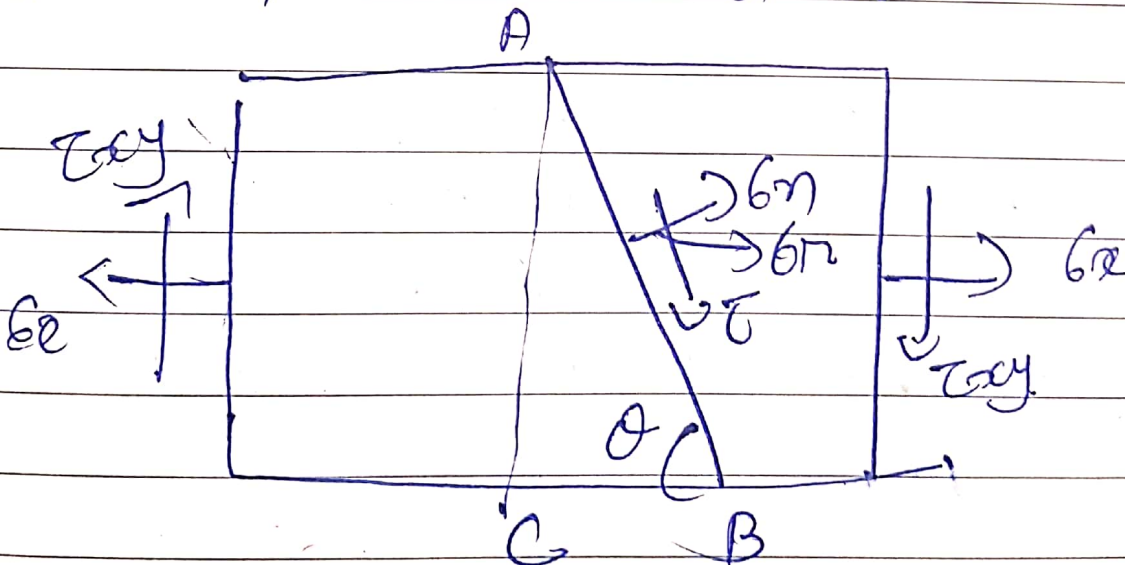 A
τxy
σn
σn
σx
σx
τ
τxy
θ
C
B